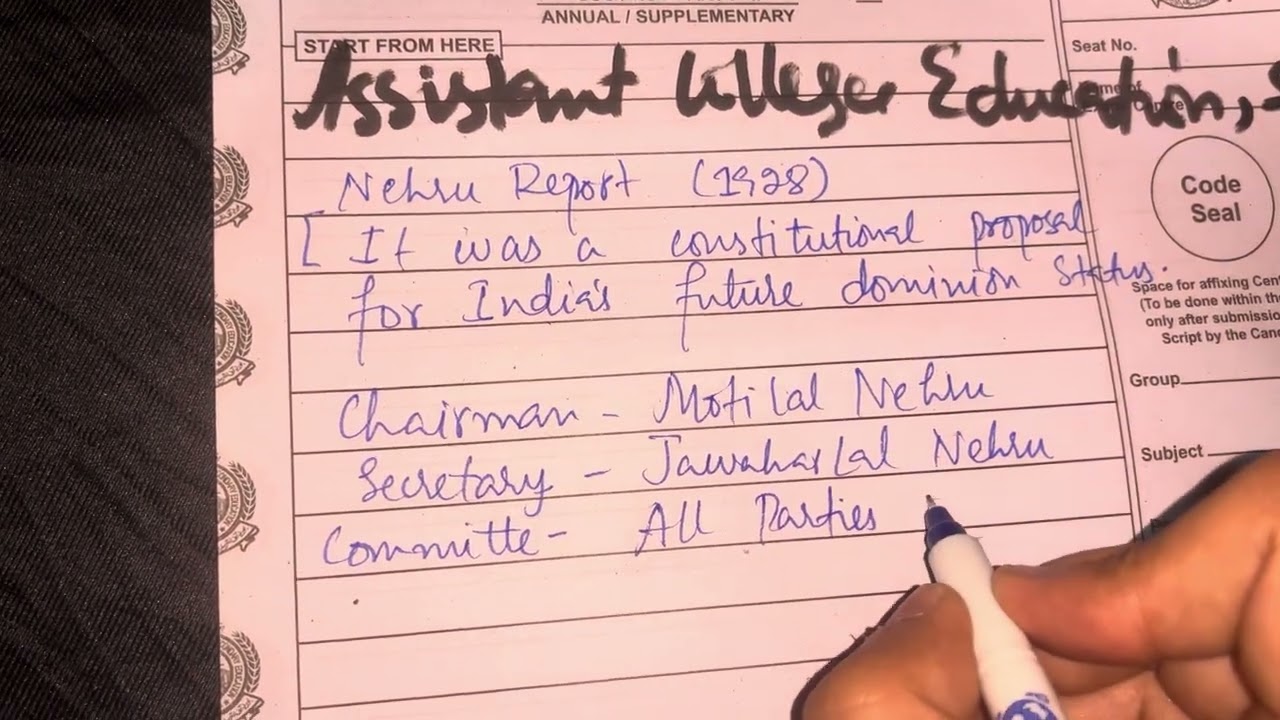 ANNUAL / SUPPLEMENTARY
START FROM HERE
Seat No.
Assistant College Education,
Nehru Report (1928)
Code
Seal
[ It was a constitutional proposal
for India's future dominion status.
Space for affixing Cen
(To be done within the
only after submissio
Script by the Can
Group
Chairman - Motilal Nehru
Subject
Secretary - Jawaharlal Nehru
Committe - All Parties